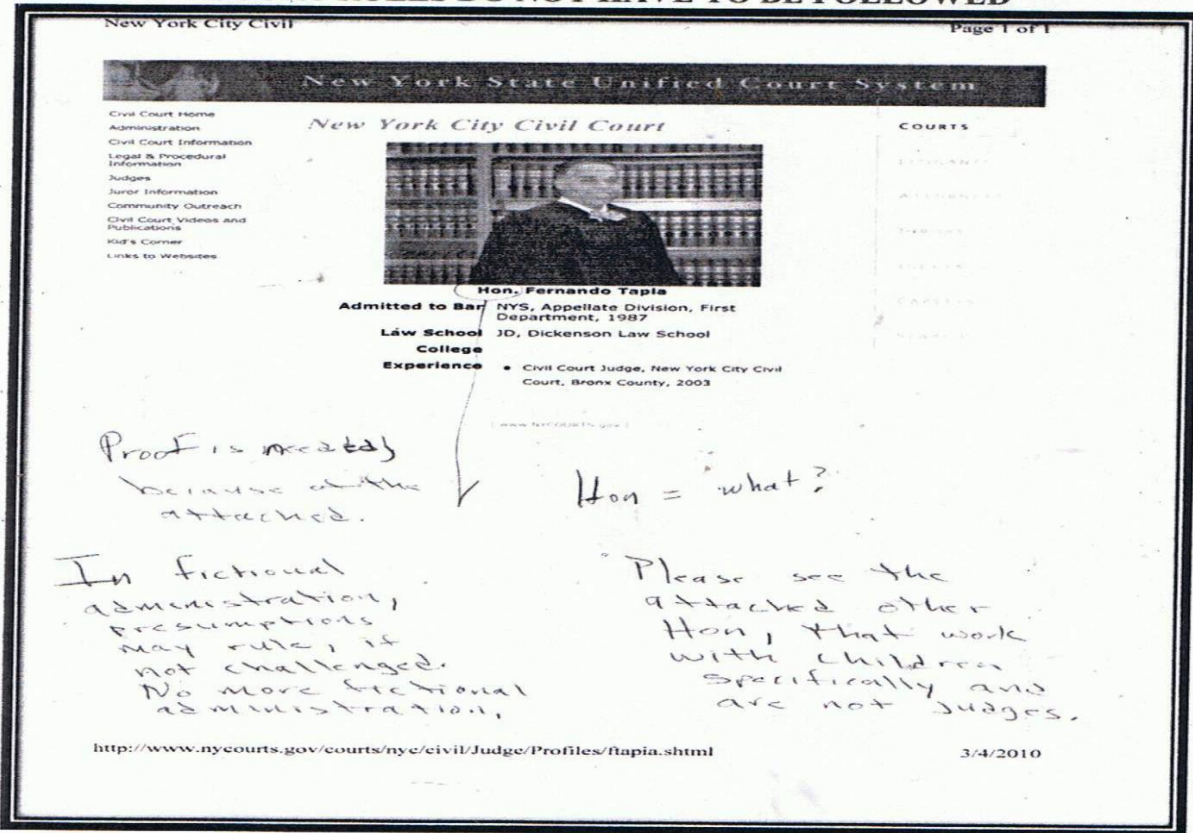 RULES DO NOT HAVE TO BE FOLLOWED
New York City Civil
Page 1 of 1
New York State Unified Court System
Civil Court Home
Administration
Civil Court Information
Legal & Procedural
Information
Judges
Juror Information
Community Outreach
Civil Court Videos and
Publications
Kid's Corner
Links to Websites
New York City Civil Court
COURTS
LITIGANTS
ATTORNEYS
JURORS
JUDGES
CAREERS
SEARCH
Hon. Fernando Tapia
Admitted to Bar NYS, Appellate Division, First
Department, 1987
Law School JD, Dickenson Law School
College
Experience • Civil Court Judge, New York City Civil
Court, Bronx County, 2003
[ www.NYCOURTS.gov ]
Proof is needed
because of the
attached.
Hon = what?
In fictional
administration,
presumptions
may rule, if
not challenged.
No more fictional
administration,
Please see the
attached other
Hon, that work
with children
specifically and
are not judges.
http://www.nycourts.gov/courts/nyc/civil/Judge/Profiles/ftapia.shtml
3/4/2010